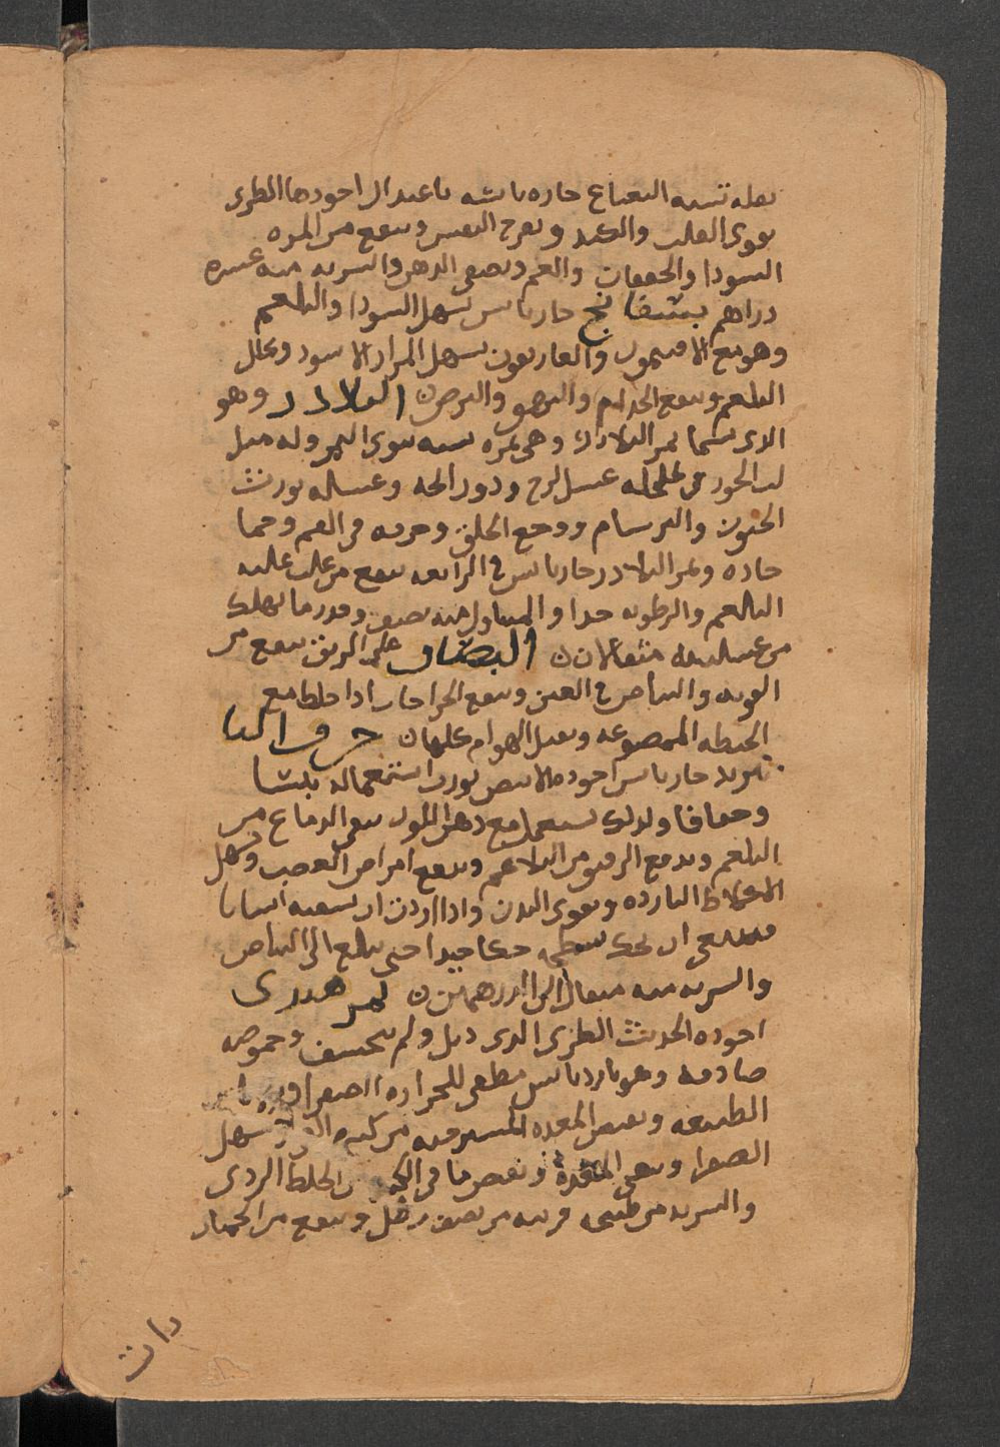 بقله تشبه النعناع حاره يابسه باعتدال اجودها الطرى
يقوى القلب والكبد ويفرح النفس وينفع من المره
السودا والخفقان والغم ويصفى الذهن والشربه منه عشره
دراهم بسفايج حار يابس يسهل السودا والبلغم
وهو مع الافتيمون والغاريقون يسهل المرار الاسود ويحلل
البلغم وينفع الجذام والبهق والبرص البلادر وهو
الذى يسمى تمر البلادر وهى ثمره تشبه نوى التمر وله مثل
لب الجوز فى تخلخله عسل لزج ودور الحبه وعسله يورث
الجنون والبرسام ووجع الحلق وحرقه فى الفم وحما
حاده وثمر البلادر حار يابس فى الرابعه ينفع من غلب عليه
البلغم والرطوبه جدا والمتناول منه نصف وقدر ما يهلك
من عسله مثقالان البصاق على الريق ينفع من
القوبه والبياض فى العين وينفع الجراحات اذا خلط مع
الحنطه الممضوغه ويقتل الهوام كلها حرف التا
تربد حار يابس اجوده الابيض يورث استعماله يبسا
وجفافا ولذلك يستعمل مع دهن اللوز ينقى الدماغ من
البلغم ويدفع الرقيق من البلاغم وينفع امراض العصب ويسهل
الاخلاط البارده ويقوى البدن واذا اردت ان تسقيه انسانا
فينبغى ان تحك سطحه حكا جيدا حتى يبلغ الى البياض
والشربه منه مثقال الى درهمين تمر هندى
اجوده الحديث الطرى الذى ذبل ولم يتحشف وحموضه
صادقه وهو بارد يابس مطفى للحراره الصفراويه
الطبيعه ويقبض المعده المسترخيه من كثره القى يسهل
الصفرا وينقى المعده وينقص ما فى الخلط الردى
والشربه من طبيخه قريبه من نصف رطل وينفع من الحميات
ذات